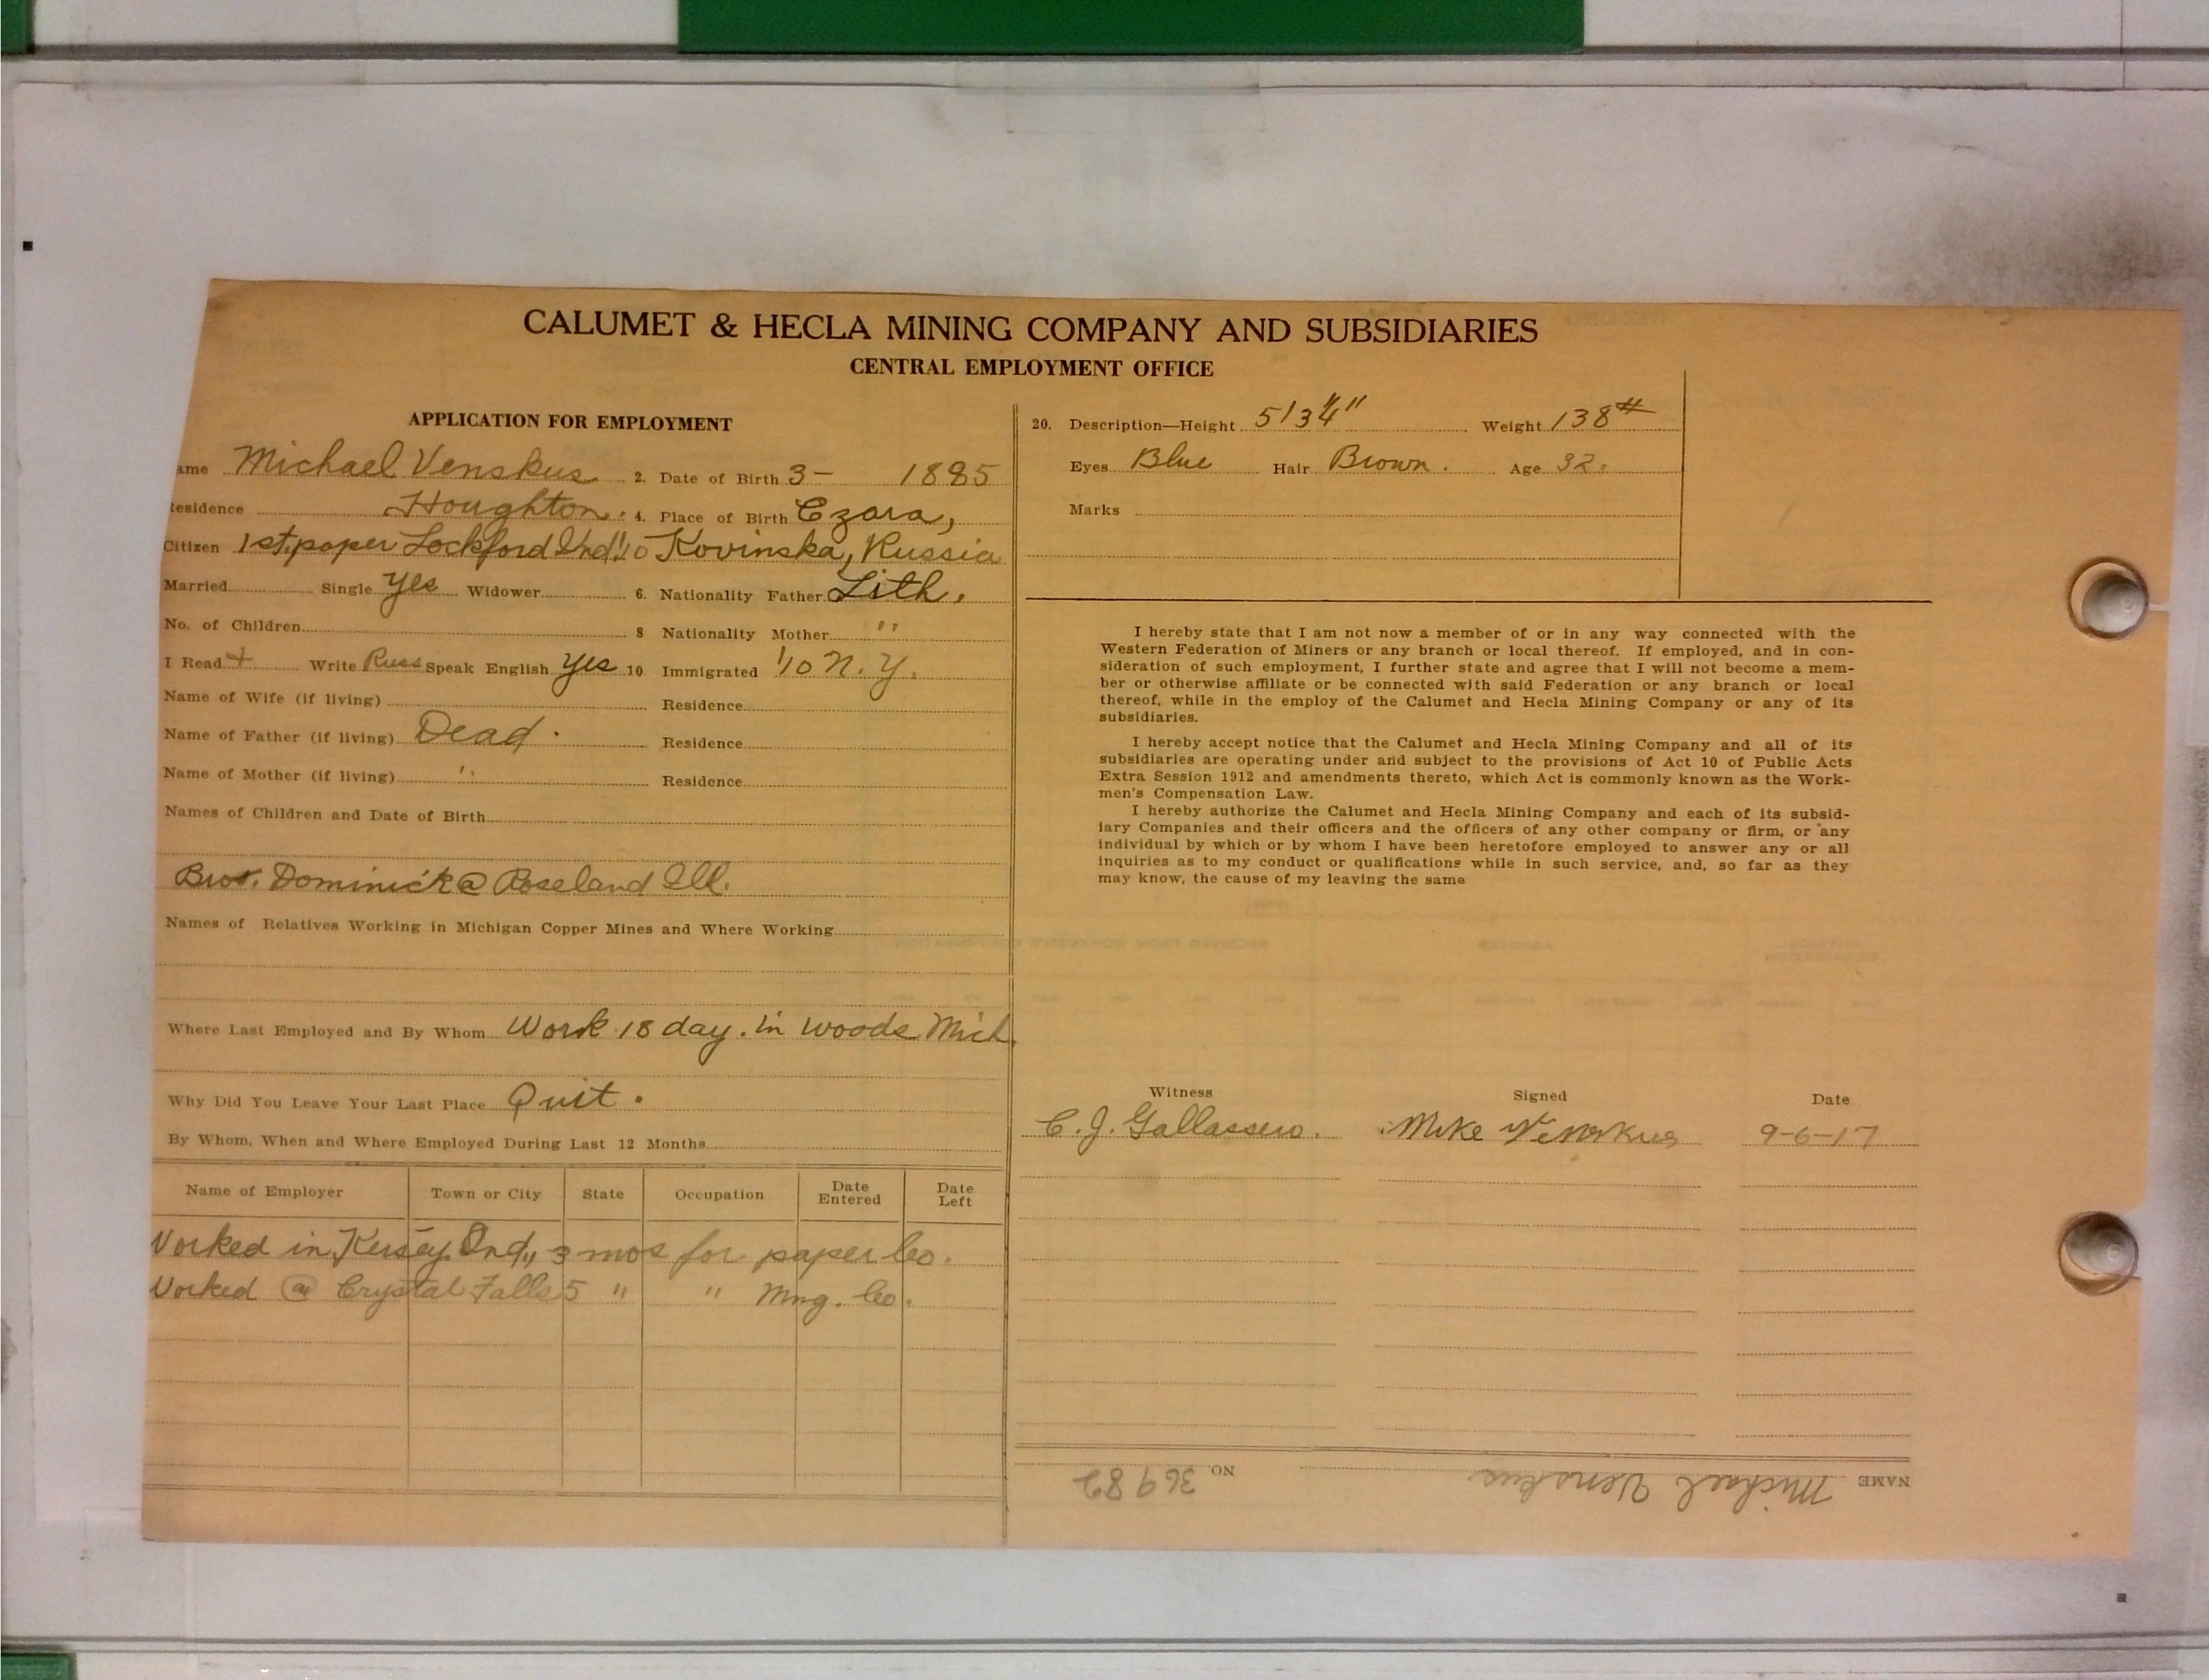 CALUMET & HECLA MINING COMPANY AND SUBSIDIARIES
CENTRAL EMPLOYMENT OFFICE
APPLICATION FOR EMPLOYMENT
ame Michael Venskus. 2. Date of Birth 3- 1885
Residence Houghton. 4. Place of Birth Ezara,
Citizen 1st paper Lockford Ind '10 Kovinska, Russia
Married Single Yes Widower 6. Nationality Father Lith.
No. of Children 8 Nationality Mother "
I Read + Write Russ Speak English Yes 10 Immigrated '10 N.Y.
Name of Wife (if living) Residence
Name of Father (if living) Dead. Residence
Name of Mother (if living) " Residence
Names of Children and Date of Birth
Bro. Dominick @ Roseland Ill.
Names of Relatives Working in Michigan Copper Mines and Where Working
Where Last Employed and By Whom Work 18 day. in woods Mich.
Why Did You Leave Your Last Place Quit.
By Whom, When and Where Employed During Last 12 Months
Name of Employer Town or City State Occupation Date Entered Date Left
Worked in Kersey. Ind., 3 mos for paper Co.
Worked @ Crystal Falls 5 " " Mng. Co.
20. Description—Height 5' 3¼" Weight 138#
Eyes Blue Hair Brown. Age 32.
Marks
I hereby state that I am not now a member of or in any way connected with the
Western Federation of Miners or any branch or local thereof. If employed, and in con-
sideration of such employment, I further state and agree that I will not become a mem-
ber or otherwise affiliate or be connected with said Federation or any branch or local
thereof, while in the employ of the Calumet and Hecla Mining Company or any of its
subsidiaries.
I hereby accept notice that the Calumet and Hecla Mining Company and all of its
subsidiaries are operating under and subject to the provisions of Act 10 of Public Acts
Extra Session 1912 and amendments thereto, which Act is commonly known as the Work-
men's Compensation Law.
I hereby authorize the Calumet and Hecla Mining Company and each of its subsid-
iary Companies and their officers and the officers of any other company or firm, or any
individual by which or by whom I have been heretofore employed to answer any or all
inquiries as to my conduct or qualifications while in such service, and, so far as they
may know, the cause of my leaving the same
Witness Signed Date
C. J. Gallassero. Mike Venskus 9-6-17
NAME Michael Venskus NO. 36982